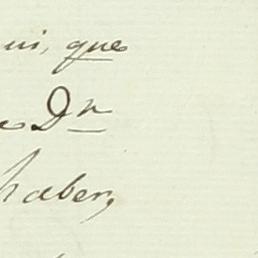 ui, que
Dn
haber,